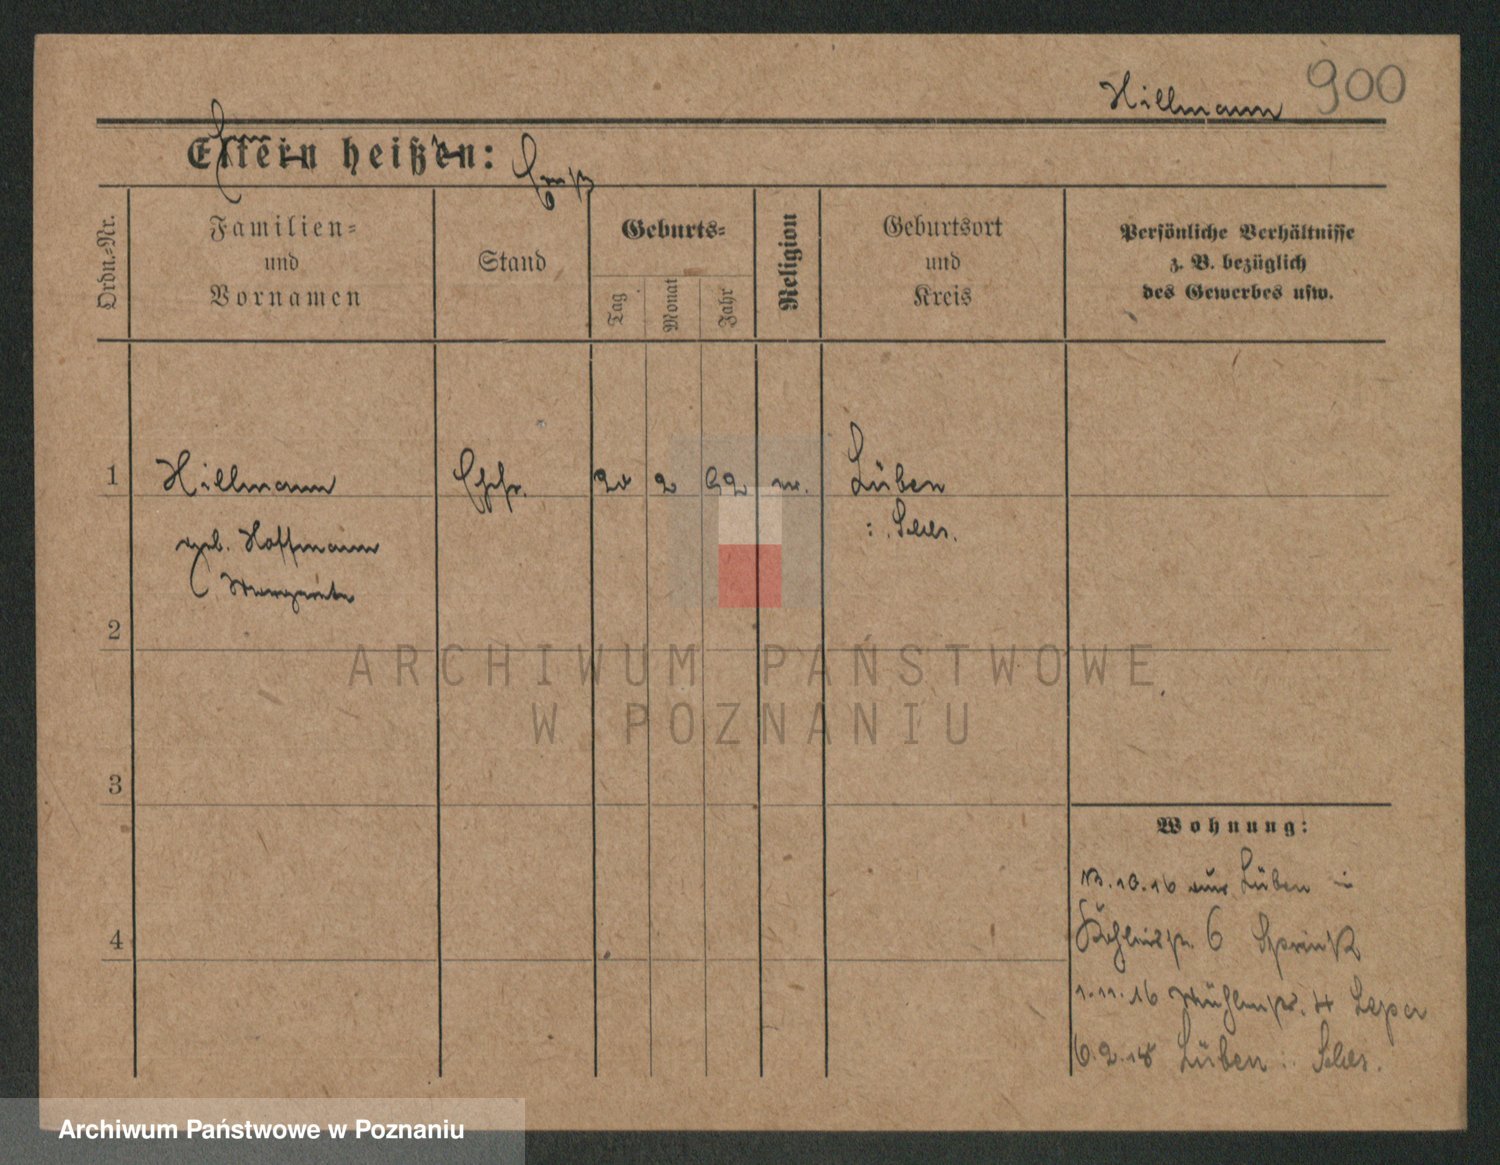 Hillmann 900
Eltern heißen:
Ordn.-Nr.
Familien-
und
Vornamen
Stand
Geburts-
Tag
Monat
Jahr
Religion
Geburtsort
und
Kreis
Persönliche Verhältnisse
z. B. bezüglich
des Gewerbes usw.
1 Hillmann Ehefr. 2 92 Lüben
geb. Hoffmann
i. Schles.
Margarete
2
3
4
Wohnung:
.10.16 aus Lüben
6
1.11.16 Mühlenstr. 4
6.2.18 Lüben i. Schles.
ARCHIWUM PAŃSTWOWE
W POZNANIU
Archiwum Państwowe w Poznaniu